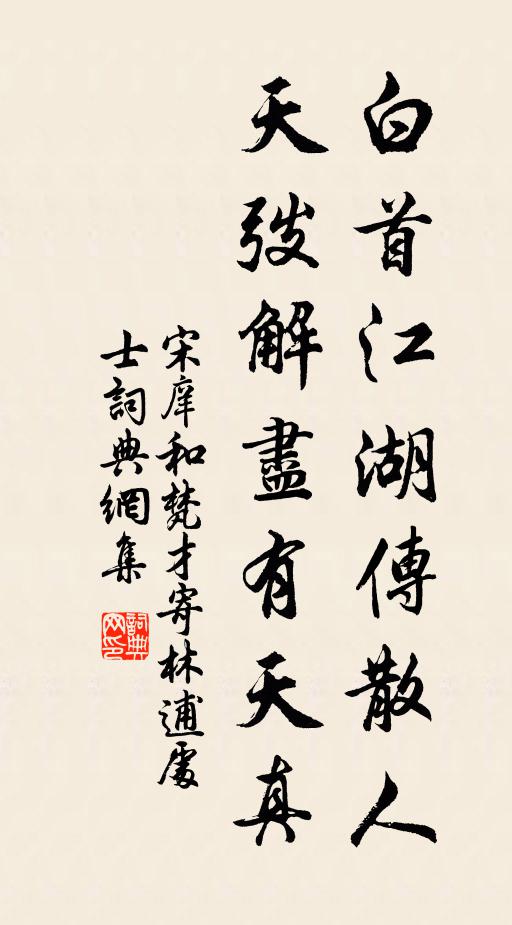 白首江湖傳散人
天弢解盡有天真
宋庠和梵才寄林逋處
士詞典網集
詞典网印